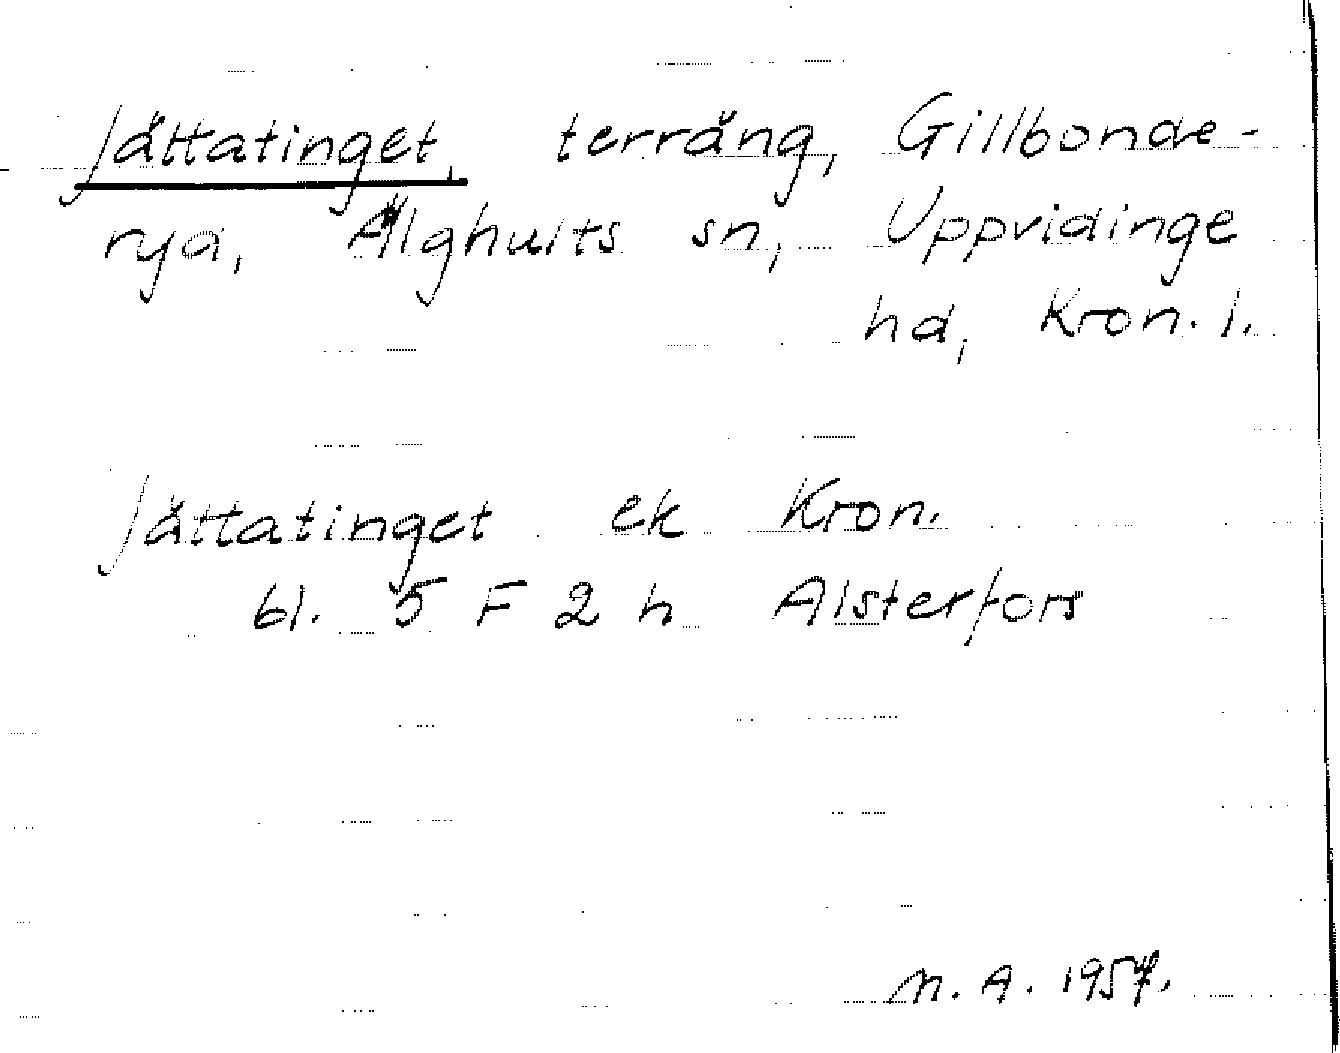 Jättatinget, terräng, Gillbonde-
rya, Älghults sn, Uppvidinge
hd, Kron. l.
Jättatinget ek Kron.
bl. 5 F 2 h Alsterfors
M. A. 1957.